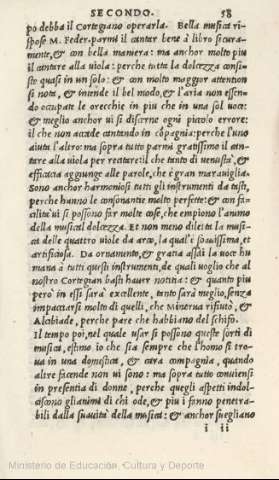 SECONDO. 58
po debba il Cortegiano operarla. Bella musica ri-
spose M. Feder. parmi il cantar bene à libro sicura-
mente, & con bella maniera: ma anchor molto piu
il cantare alla viola: perche tutta la dolcezza consi-
ste quasi in un solo: & con molto maggior attention
si nota, & intende il bel modo, & l'aria non essen-
do occupate le orecchie in piu che in una sol voce:
& meglio anchor ui si discerne ogni picciolo errore:
il che non accade cantando in cōpagnia: perche l'uno
aiuta l'altro: ma sopra tutto parmi gratissimo il can-
tare alla viola per recitare: il che tanto di uenustà, &
efficacia aggiunge alle parole, che è gran marauiglia.
Sono anchor harmoniosi tutti gli instrumenti da tasti,
perche hanno le consonantie molto perfette: & con fa-
cilità ui si possono far molte cose, che empiono l'animo
della musical dolcezza. Et non meno diletta la musi-
ca delle quattro viole da arco, la qual'è soauissima, et
artificiosa. Da ornamento, & gratia assai la uoce hu
mana à tutti questi instrumenti, de quali uoglio che al
nostro Cortegian basti hauer notitia: & quanto piu
però in essi sarà excellente, tanto sarà meglio, senza
impacciarsi molto di quelli, che Minerua rifiutò, &
Alcibiade, perche pare che habbiano del schifo.
Il tempo poi, nel quale usar si possono queste sorti di
musica, estimo io che sia sempre che l'homo si tro-
ua in una domestica, & cara compagnia, quando
altre facende non ui sono: ma sopra tutto conuiensi
in presentia di donne, perche quegli aspetti indol-
ciscono gli animi di chi ode, & piu i fanno penetra-
bili dalla suauità della musica: & anchor suegliano
i ii
Ministerio de Educación, Cultura y Deporte